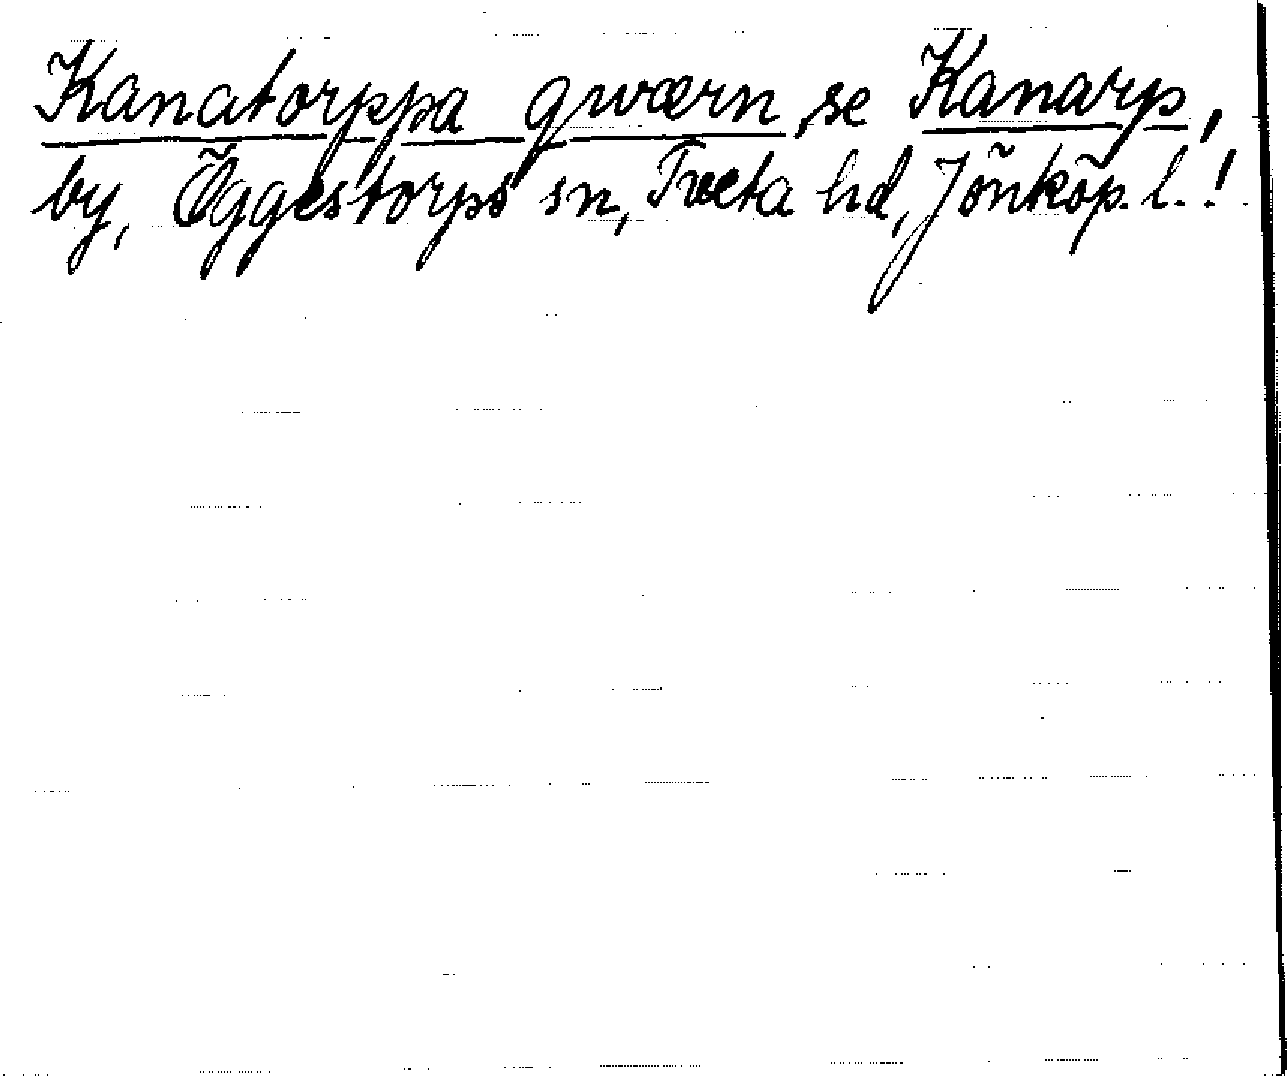 Kanatorppa qwærn, se Kanarp,
by, Öggestorps sn, Tveta hd, Jönköp. l. !